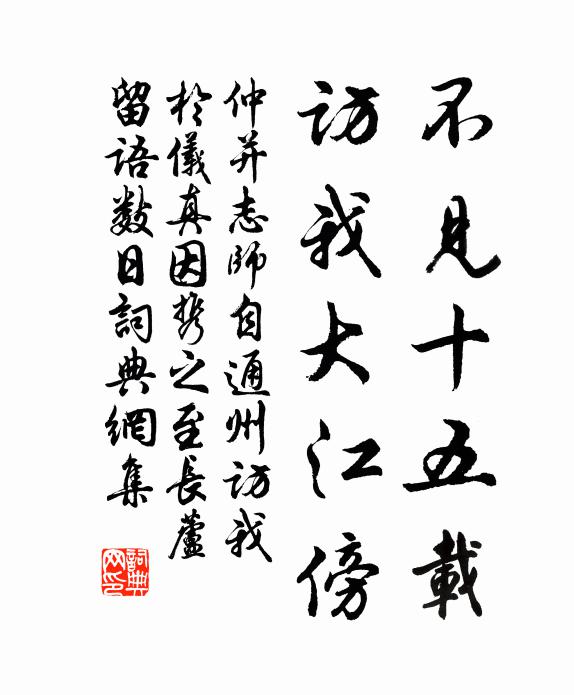 不見十五載
訪我大江傍
仲并志師自通州訪我
於儀真因携之至長蘆
留語数日詞典網集
詞典網印